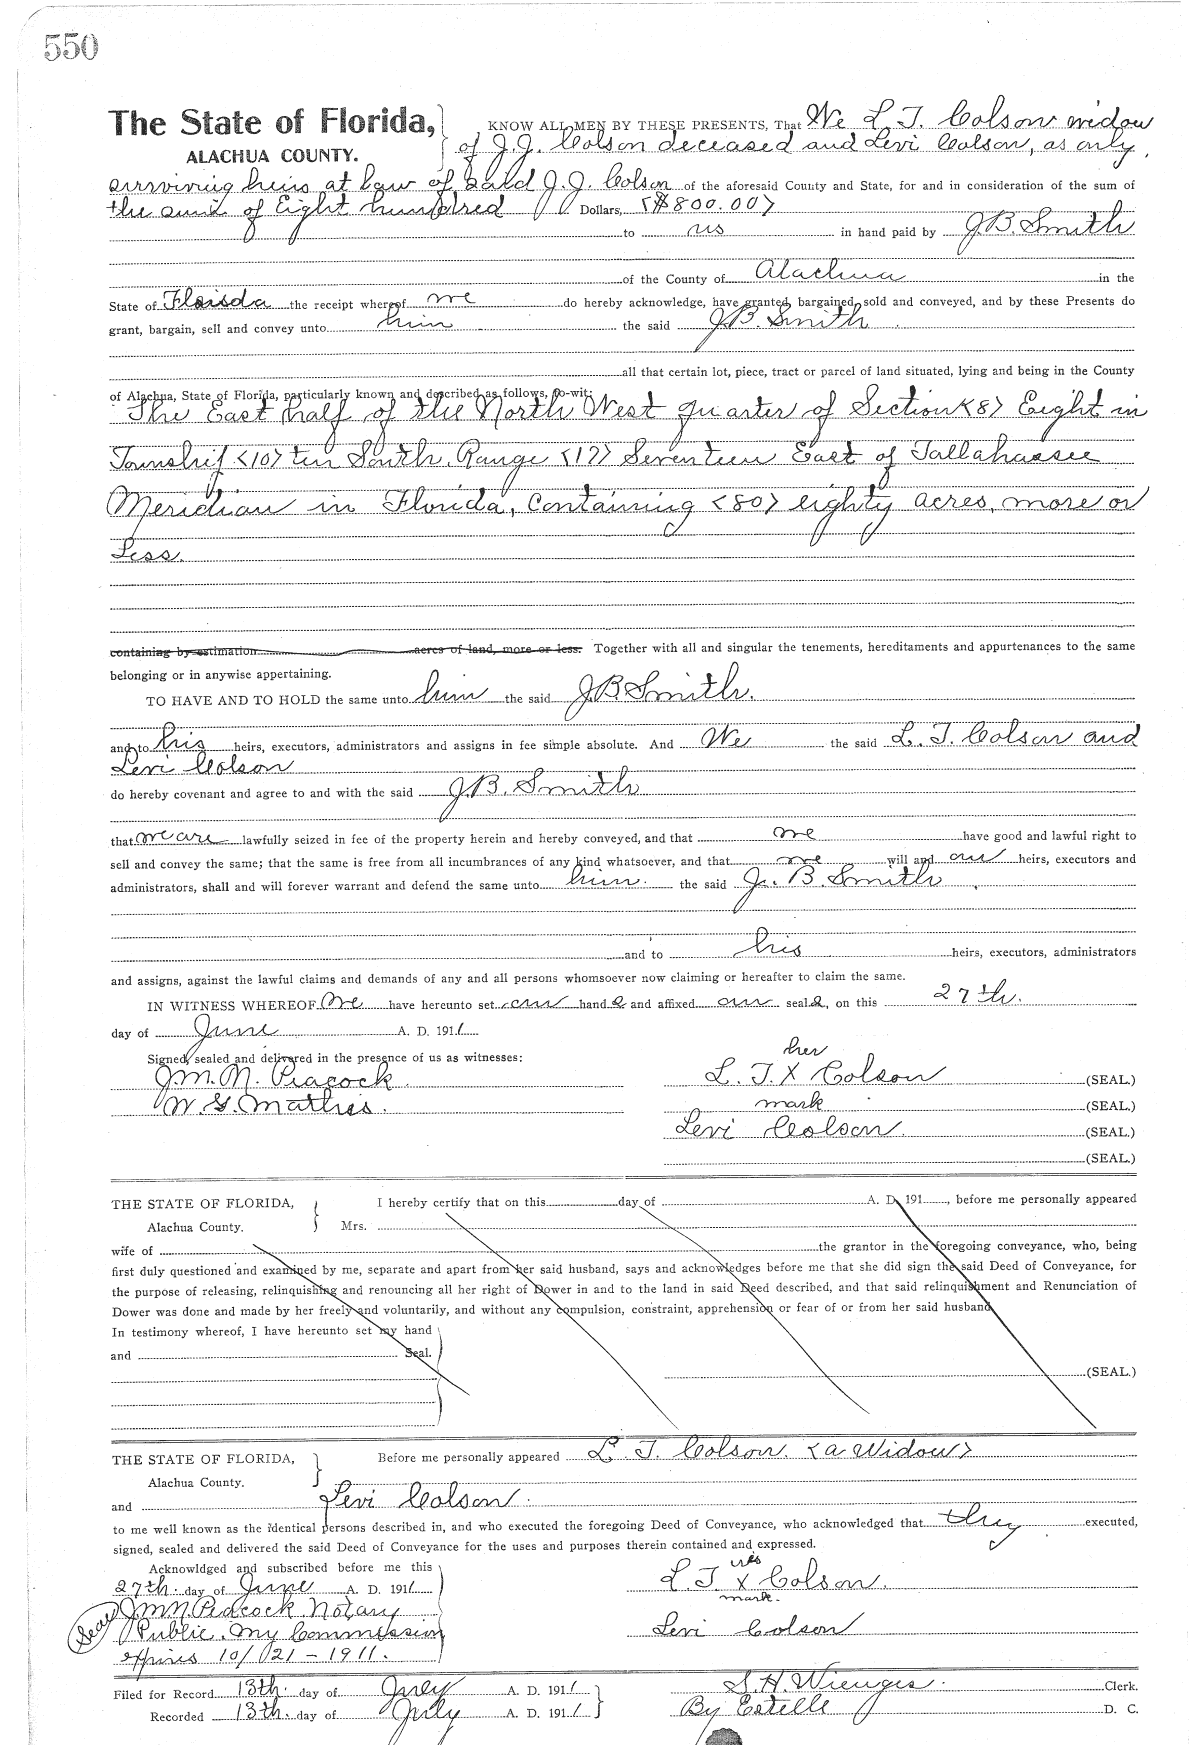 550
The State of Florida, KNOW ALL MEN BY THESE PRESENTS, That We L. T. Colson widow
ALACHUA COUNTY. of J. J. Colson deceased and Levi Colson, as only
surviving heirs at law of said J. J. Colson of the aforesaid County and State, for and in consideration of the sum of
the sum of Eight hundred Dollars, <$800.00>
to us in hand paid by J. B. Smith
of the County of Alachua in the
State of Florida the receipt whereof we do hereby acknowledge, have granted, bargained, sold and conveyed, and by these Presents do
grant, bargain, sell and convey unto him the said J. B. Smith
all that certain lot, piece, tract or parcel of land situated, lying and being in the County
of Alachua, State of Florida, particularly known and described as follows, to-wit:
The East half of the North West quarter of Section <8> Eight in
Township <10> ten South, Range <17> Seventeen East of Tallahassee
Meridian in Florida, Containing <80> eighty acres, more or
Less.
containing by estimation acres of land, more or less. Together with all and singular the tenements, hereditaments and appurtenances to the same
belonging or in anywise appertaining.
TO HAVE AND TO HOLD the same unto him the said J. B. Smith.
and to his heirs, executors, administrators and assigns in fee simple absolute. And We the said L. T. Colson and
Levi Colson
do hereby covenant and agree to and with the said J. B. Smith
that we are lawfully seized in fee of the property herein and hereby conveyed, and that we have good and lawful right to
sell and convey the same; that the same is free from all incumbrances of any kind whatsoever, and that we will and our heirs, executors and
administrators, shall and will forever warrant and defend the same unto him. the said J. B. Smith
and to his heirs, executors, administrators
and assigns, against the lawful claims and demands of any and all persons whomsoever now claiming or hereafter to claim the same.
IN WITNESS WHEREOF We have hereunto set our hands and affixed our seals, on this 27th.
day of June A. D. 1911
Signed, sealed and delivered in the presence of us as witnesses: her
J. M. N. Peacock. L. T. X Colson (SEAL.)
W. G. Mathis. mark (SEAL.)
Levi Colson. (SEAL.)
(SEAL.)
THE STATE OF FLORIDA, I hereby certify that on this day of A. D. 191 , before me personally appeared
Alachua County. Mrs.
wife of the grantor in the foregoing conveyance, who, being
first duly questioned and examined by me, separate and apart from her said husband, says and acknowledges before me that she did sign the said Deed of Conveyance, for
the purpose of releasing, relinquishing and renouncing all her right of Dower in and to the land in said Deed described, and that said relinquishment and Renunciation of
Dower was done and made by her freely and voluntarily, and without any compulsion, constraint, apprehension or fear of or from her said husband
In testimony whereof, I have hereunto set my hand
and Seal.
(SEAL.)
THE STATE OF FLORIDA, Before me personally appeared L. T. Colson. <a Widow>
Alachua County.
and Levi Colson.
to me well known as the identical persons described in, and who executed the foregoing Deed of Conveyance, who acknowledged that they executed,
signed, sealed and delivered the said Deed of Conveyance for the uses and purposes therein contained and expressed.
Acknowldged and subscribed before me this
27th. day of June A. D. 1911 L T X Colson.
mark.
Seal J. M. N. Peacock Notary
Public. My Commission Levi Colson
expires 10/21-1911.
Filed for Record 13th. day of July A. D. 1911 S. H. Wienges. Clerk.
Recorded 13th. day of July A. D. 1911 By Estelle D. C.